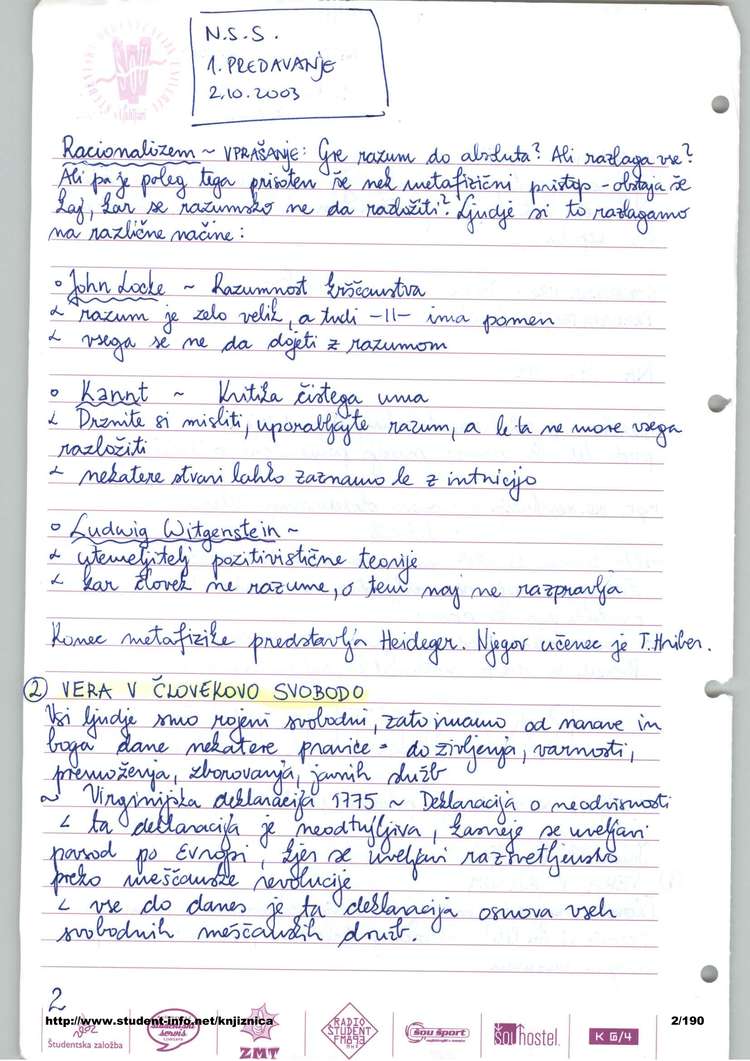 N.S.S.
1. PREDAVANJE
2.10.2003
Racionalizem ~ VPRAŠANJE: Gre razum do absoluta? Ali razlaga vse?
Ali pa je poleg tega prisoten še nek metafizični pristop - obstaja še
kaj, kar se razumsko ne da razložiti? Ljudje si to razlagamo
na različne načine:
John Locke ~ Razumnost krščanstva
razum je zelo velik, a tudi -II- ima pomen
vsega se ne da dojeti z razumom
Kannt ~ Kritika čistega uma
Drznite si misliti, uporabljajte razum, a le ta ne more vsega
razložiti
nekatere stvari lahko zaznamo le z intuicijo
Ludwig Witgenstein ~
utemeljitelj pozitivistične teorije
kar človek ne razume, o tem naj ne razpravlja
Konec metafizike predstavlja Heideger. Njegov učenec je T. Hriber.
2 VERA V ČLOVEKOVO SVOBODO
Vsi ljudje smo rojeni svobodni, zato imamo od narave in
boga dane nekatere pravice - do življenja, varnosti,
premoženja, zborovanja, javnih služb
~ Virginijska deklaracija 1775 ~ Deklaracija o neodvisnosti
ta deklaracija je neodtujljiva, kasneje se uveljavi
povsod po Evropi, kjer se uveljavi razsvetljenstvo
preko meščanske revolucije
vse do danes je ta deklaracija osnova vseh
svobodnih meščanskih družb.
2
http://www.student-info.net/knjiznica
2/190
Študentska založba
študentski servis
ZMT
RADIO
STUDENT
FM89,3
šou šport
šouhostel.
K G/4